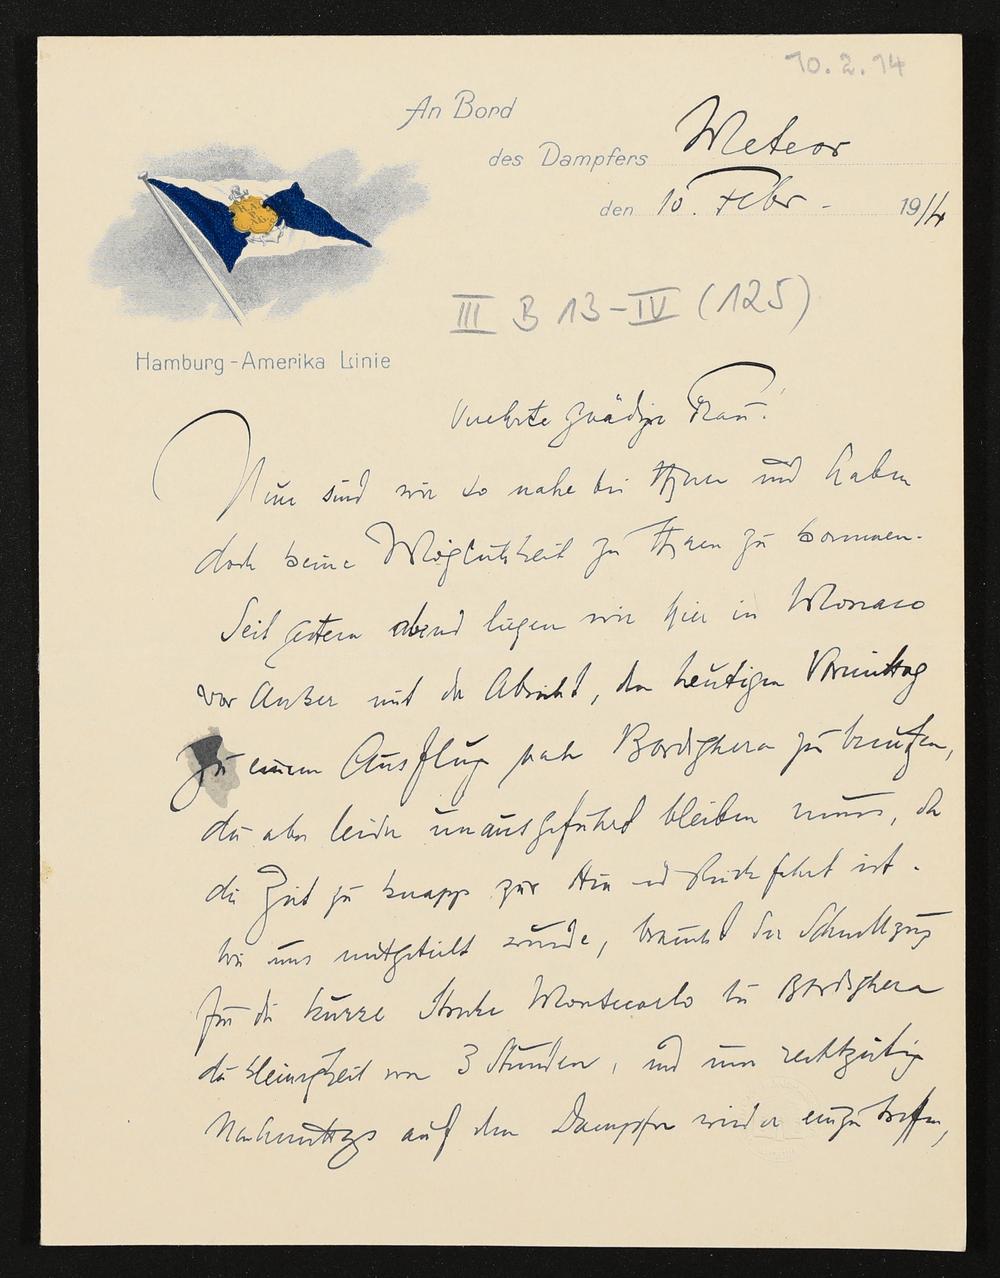 10.2.14
An Bord
des Dampfers Meteor
den 10. Febr. 1914
III B 13-IV (125)
Hamburg-Amerika Linie
Verehrte gnädige Frau!
Nun sind wir so nahe bei Ihnen und haben
doch keine Möglichkeit zu Ihnen zu kommen.
Seit gestern abend liegen wir hier in Monaco
vor Anker mit der Absicht, den heutigen Vormittag
zu einem Ausflug nach Bordighera zu benützen,
der aber leider unausgeführt bleiben muss, da
die Zeit zu knapp zur Hin und Rückfahrt ist.
Wie uns mitgeteilt wurde, braucht der Schnellzug
für die kurze Strecke Montecarlo bis Bordighera
die Kleinigkeit von 3 Stunden, und um rechtzeitig
Nachmittags auf dem Dampfer wieder einzutreffen,